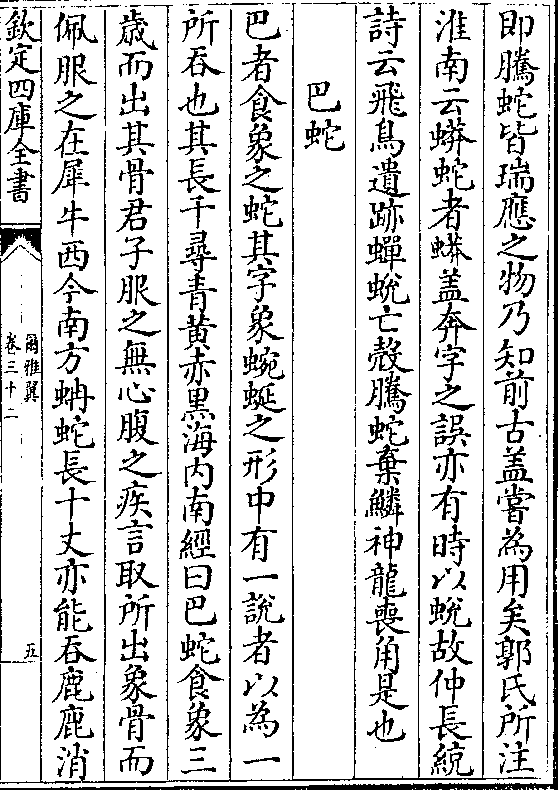 即騰蛇皆瑞應之物乃知前古盖嘗為用矣郭氏所注
淮南云蟒蛇者蟒盖奔字之誤亦有時以蛻故仲長統
詩云飛鳥遺跡蟬蛻亡殼騰蛇棄鱗神龍喪角是也
巴蛇
巴者食象之蛇其字象蜿蜒之形中有一說者以為一
所吞也其長千尋青黄赤黒海内南經曰巴蛇食象三
歳而出其骨君子服之無心腹之疾言取所出象骨而
佩服之在犀牛西今南方蚺蛇長十丈亦能吞鹿鹿消
欽定四庫全書
爾雅翼
卷三十二
五